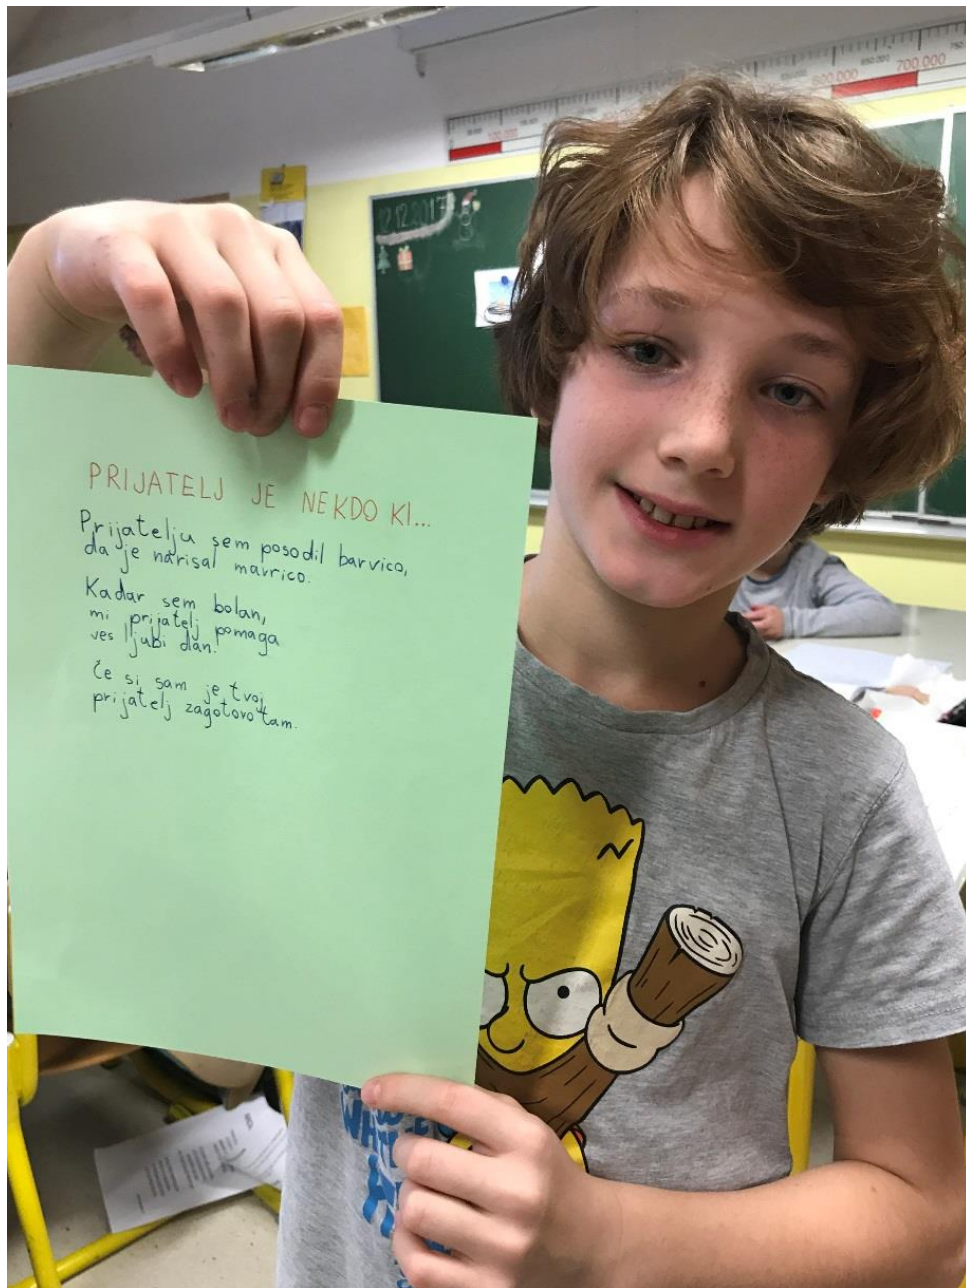 750.
700.000
650.000
600.000
100.000
12.12.2017
PRIJATELJ JE NEKDO KI...
Prijatelju sem posodil barvico,
da je narisal mavrico.
Kadar sem bolan,
mi prijatelj pomaga
ves ljubi dan.
Če si sam je tvoj
prijatelj zagotovo tam.